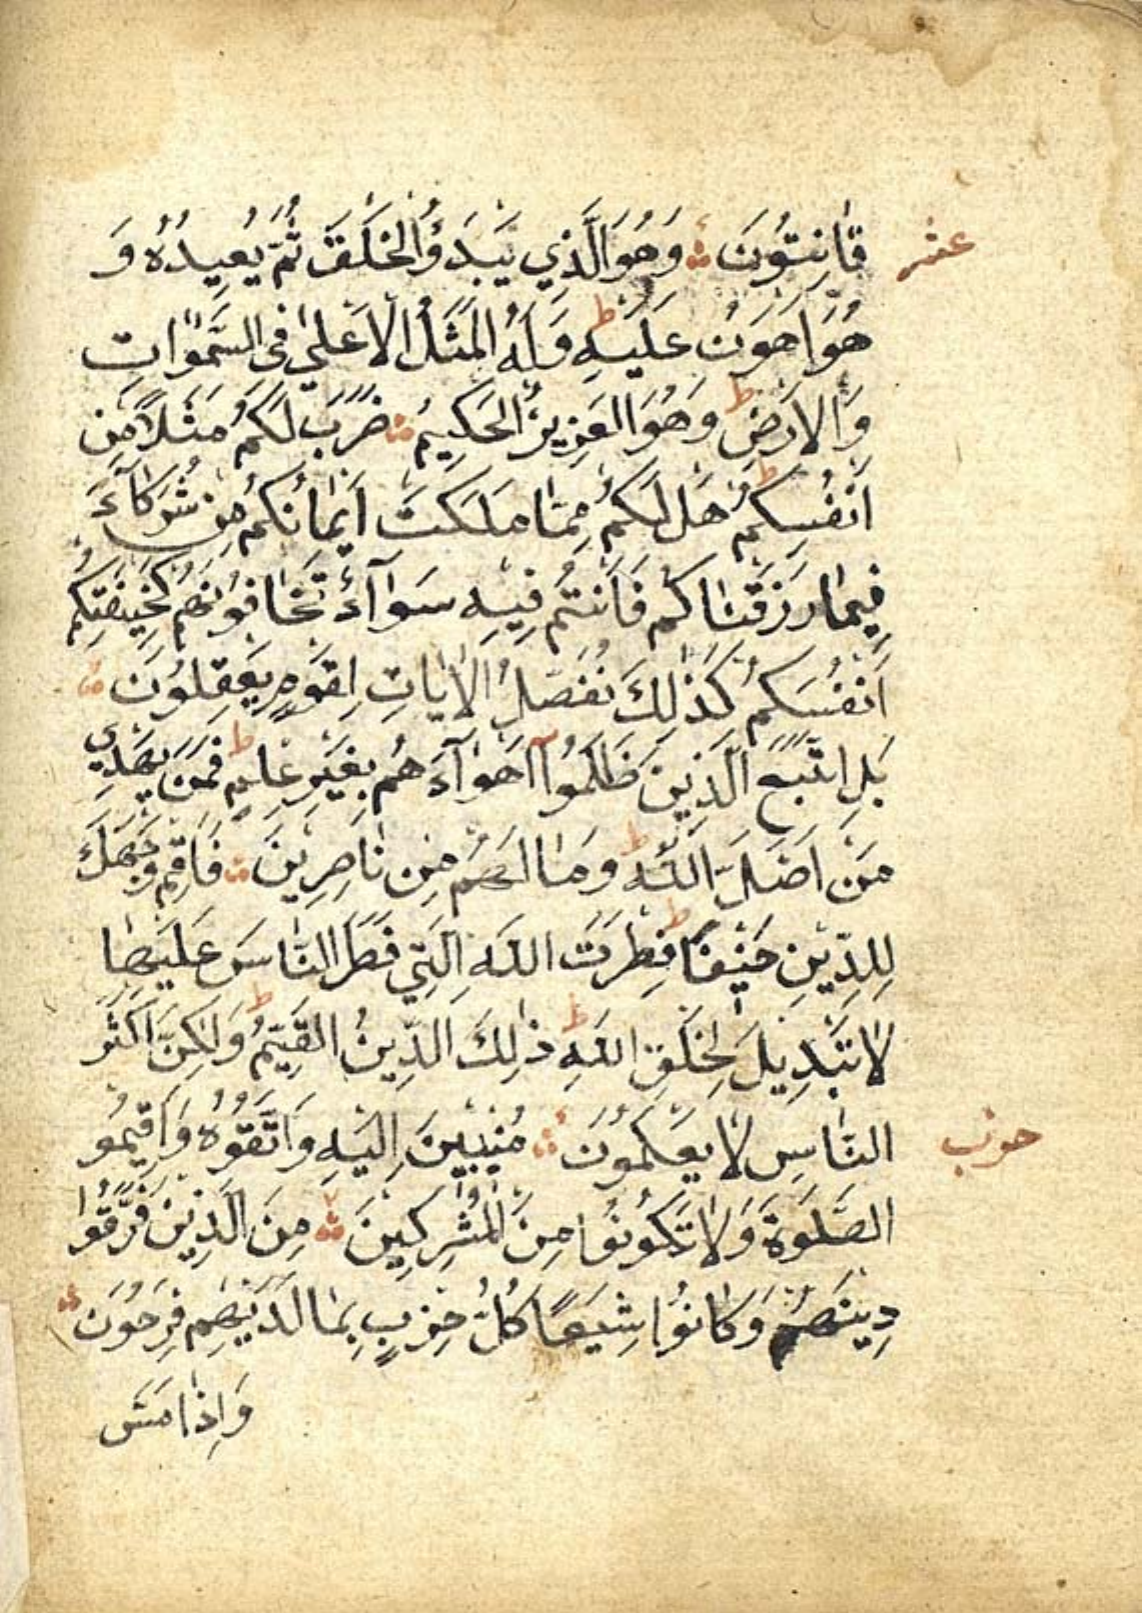 عشر
قَانِتُونَ وَهُوَ الَّذِي يَبْدَؤُا الْخَلْقَ ثُمَّ يُعِيدُهُ وَ
هُوَ اَهْوَنُ عَلَيْهِ ط وَلَهُ الْمَثَلُ الْاَعْلٰى فِى السَّمٰوَاتِ
وَالْاَرْضِ ط وَهُوَ الْعَزِيزُ الْحَكِيمُ ضَرَبَ لَكُمْ مَثَلًا مِنْ
اَنْفُسِكُمْ ط هَلْ لَكُمْ مِمَّا مَلَكَتْ اَيْمَانُكُمْ مِنْ شُرَكَآءَ
فِيمَا رَزَقْنَاكُمْ فَاَنْتُمْ فِيهِ سَوَآءٌ تَخَافُونَهُمْ كَخِيفَتِكُمْ
اَنْفُسَكُمْ كَذٰلِكَ نُفَصِّلُ الْاٰيَاتِ لِقَوْمٍ يَعْقِلُونَ
بَلِ اتَّبَعَ الَّذِينَ ظَلَمُوا اَهْوَآءَهُمْ بِغَيْرِ عِلْمٍ ط فَمَنْ يَهْدِي
مَنْ اَضَلَّ اللّٰهُ ط وَمَا لَهُمْ مِنْ نَاصِرِينَ فَاَقِمْ وَجْهَكَ
لِلدِّينِ حَنِيفًا ط فِطْرَتَ اللّٰهِ الَّتِي فَطَرَ النَّاسَ عَلَيْهَا
لَا تَبْدِيلَ لِخَلْقِ اللّٰهِ ط ذٰلِكَ الدِّينُ الْقَيِّمُ ط وَلٰكِنَّ اَكْثَرَ
النَّاسِ لَا يَعْلَمُونَ مُنِيبِينَ اِلَيْهِ وَاتَّقُوهُ وَاَقِيمُو
حزب
الصَّلٰوةَ وَلَا تَكُونُوا مِنَ الْمُشْرِكِينَ مِنَ الَّذِينَ فَرَّقُوا
دِينَهُمْ وَكَانُوا شِيَعًا كُلُّ حِزْبٍ بِمَا لَدَيْهِمْ فَرِحُونَ
وَاِذَا مَسَّ